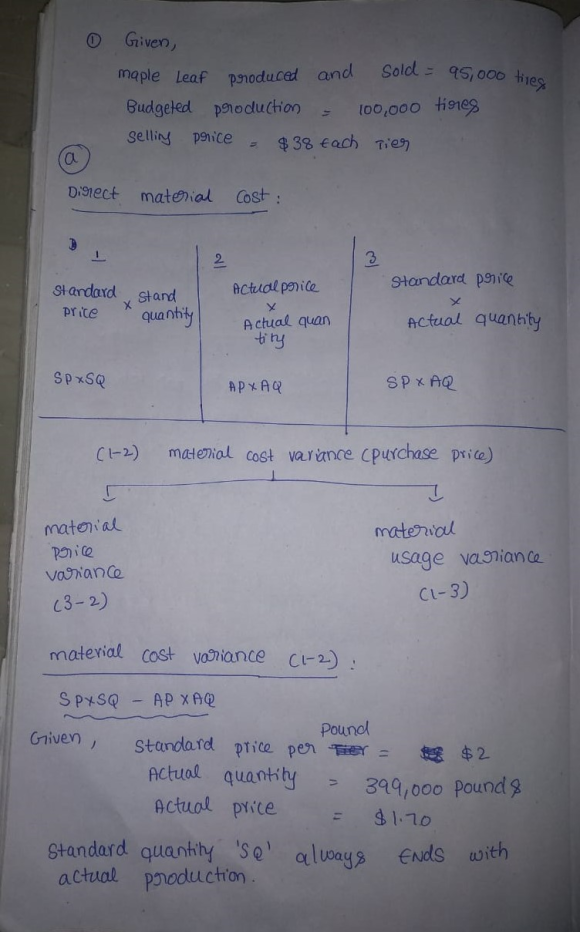 ① Given,
maple Leaf produced and Sold = 95,000 tires
Budgeted production = 100,000 tires
Selling price = $38 Each Tier
ⓐ
Direct material Cost :
1
Standard price × Stand quantity
SP×SQ
2
Actual price
×
Actual quan
tity
AP×AQ
3
Standard price
×
Actual quantity
SP×AQ
(1-2) material cost variance (purchase price)
material
price
variance
(3-2)
material
usage variance
(1-3)
material cost variance (1-2) :
SP×SQ - AP×AQ
Given, Standard price per Pound = $2
Actual quantity = 399,000 pounds
Actual price = $1.70
Standard quantity 'SQ' always Ends with
actual production.